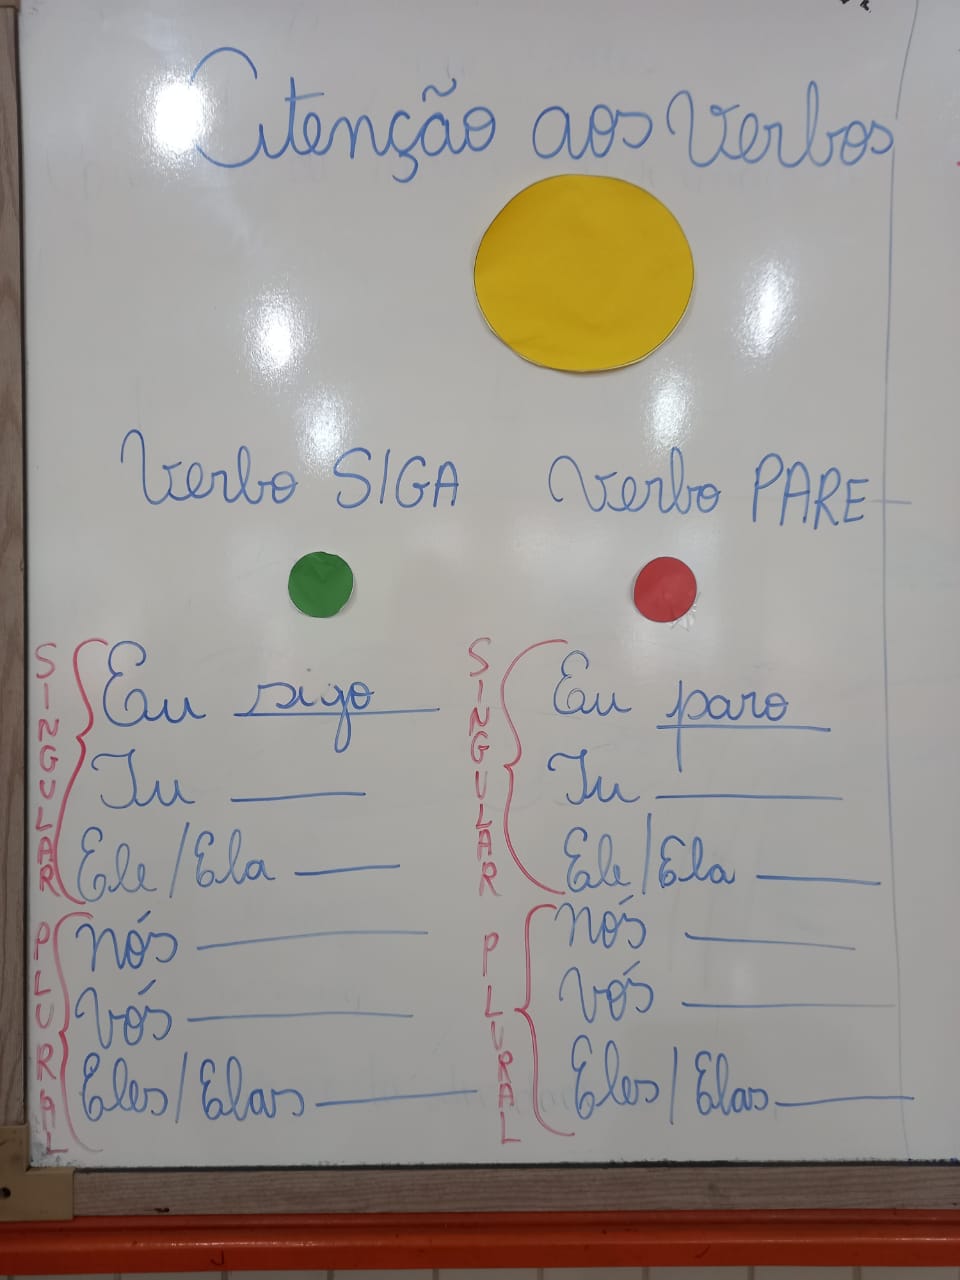 Atenção aos Verbos
Verbo SIGA
SINGULAR
Eu sigo
Tu ____
Ele/Ela ____
PLURAL
nós ____
vós ____
Eles/Elas ____
Verbo PARE
SINGULAR
Eu paro
Tu ____
Ele/Ela ____
PLURAL
nós ____
vós ____
Eles/Elas ____